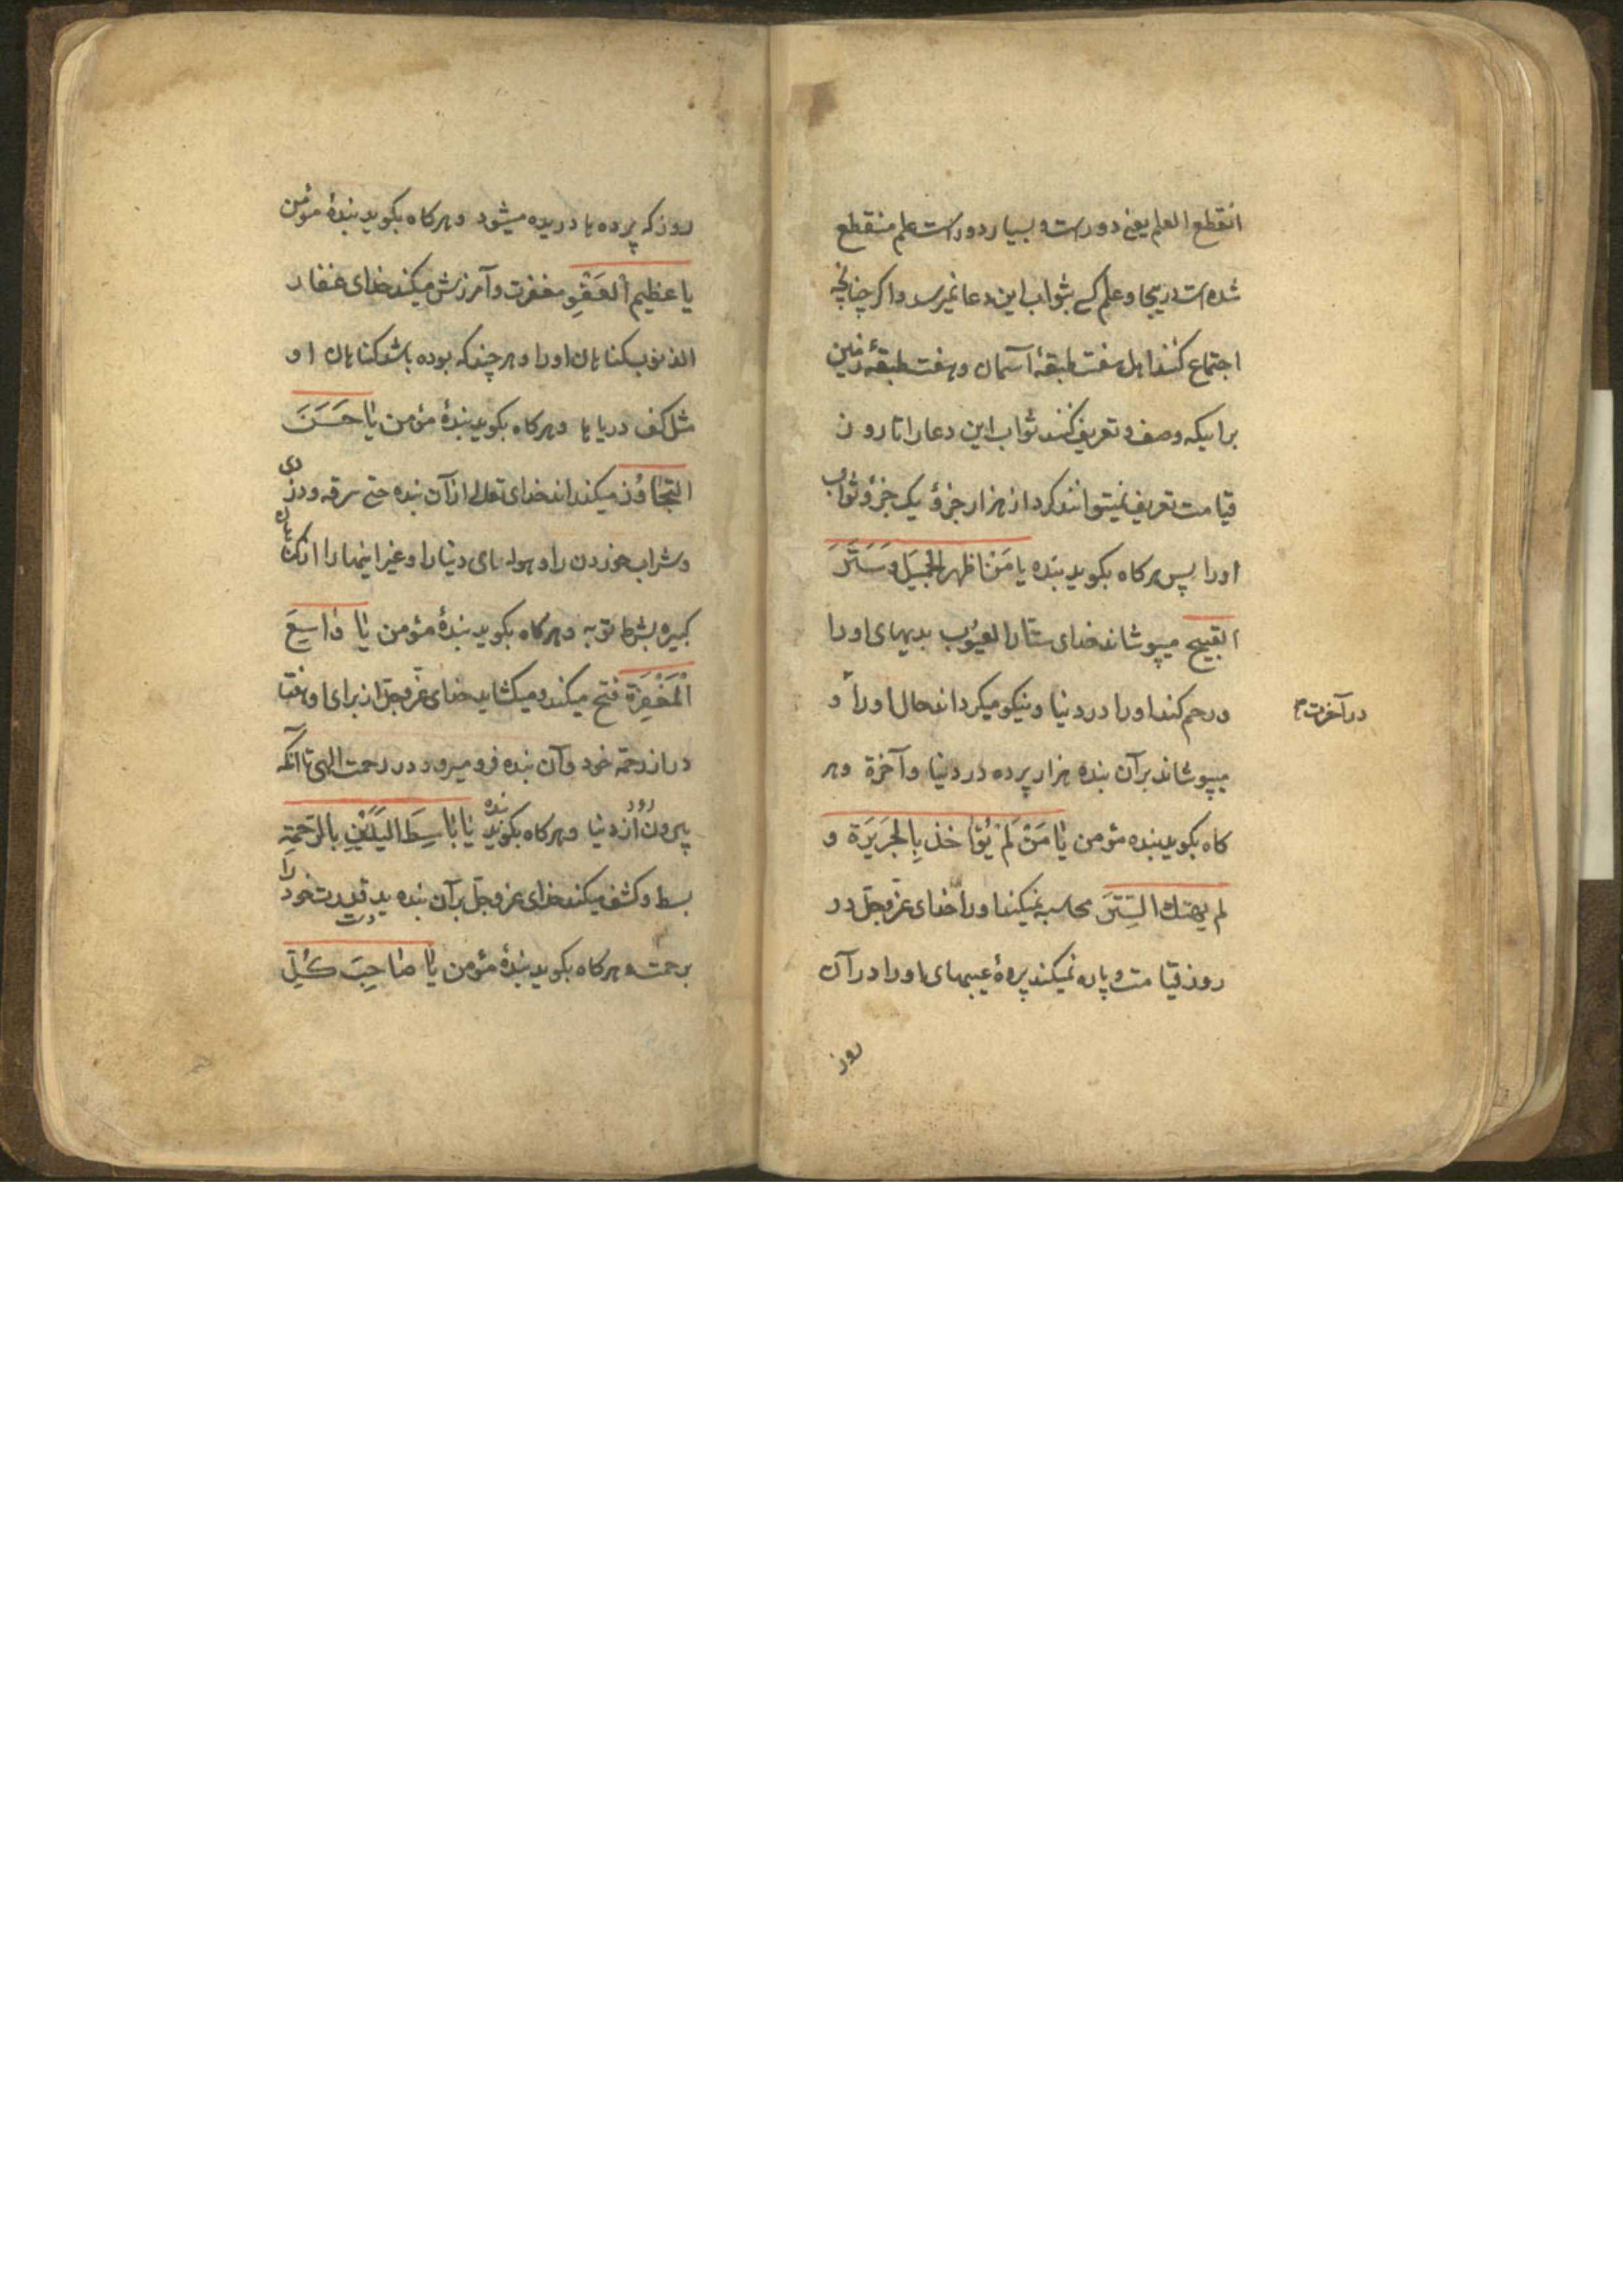 انقطع العلم یعنی دورست و بسیار دورست علم منقطع
شده است در یجا و علم کسی بثواب این دعا نمیرسد و اکر چنانچه
اجتماع کنند اهل هفت طبقهٔ آسمان و هفت طبقهٔ زمین
برانیکه وصف و تعریف کنند ثواب این دعا را تا روز
قیامت تعریف نمیتوانند کرد از هزار جزؤ یک جزؤ ثواب
اورا پس هرکاه بکوید بنده یا مَنْ اظهر الجَمیَل وَسَتَرَ
القبیح میپوشاند خدای ستّار العیُوب بدیهای اورا
ورحم کند اورا در دنیا و نیکو میکرداند حال اورا و
در آخرت
میپوشاند بر آن بنده هزار پرده در دنیا و آخرة و هر
کاه بکوید بنده مؤمن یٰا مَنْ لَمْ یُؤٰاخذ بِالجَرَیَرَة و
لم یهتك السِّتَرَ محاسبه نمیکند اورا خدای عزّ وجلّ در
روز قیامت و پاره نمیکند پردهٔ عیبهای اورا در آن
روز
روز که پرده ها دریده میشود و هرکاه بکوید بندهٔ مؤمن
یا عظیم اْلعَفْوِ مغفرت و آمرزش میکند خدای غفار
الذنوب کناهان اورا و هر چند که بوده باشد کناهان او
مثل کف دریاها و هرکاه بکوید بندهٔ مؤمن یٰا حَسَنَ
التَّجٰاوُز میکذراند خدای تعالی از آن بنده حتی سرقه و دزدی
و شراب خوردن را و هولهای دنیا را و غیر اینها را از کناهان
کبیره بشرط توبه و هرکاه بکوید بندهٔ مؤمن یٰا وٰاسِعَ
اْلمَغْفِرَة فتح میکند و میکشاید خدای عزّ وجلّ از برای او هفتا
در از رحمة خود و آن بنده فرو میرود در رحمت الهی تا آنکه
بیرون رود از دنیا و هرکاه بکوید بنده یٰا بٰاسِطَ الیَدَیْنِ بالرَّحمَةِ
بسط و کشف میکند خدای عزّ وجلّ بر آن بنده ید قدرت خود را
برحمت و هرکاه بکوید بندهٔ مؤمن یٰا صٰاحِبَ کُلِّ